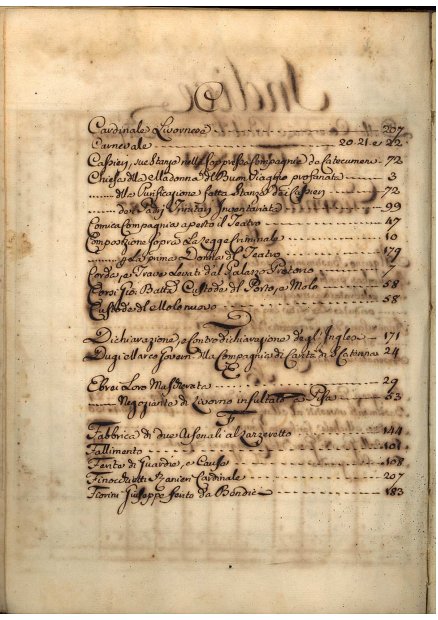 C
Cardinale Livornese 207
Carnevale 20.21.e 22
Cassieri, sue Stanze nella soppressa Compagnia da Catecumeni 72
Chiesa della Madonna del Buon Viaggio profanata 3
della Purificazione fatta Stanza dei Cassieri 72
dei Padri Trinitari Incontaminata 99
Comica Compagnia apesto il Teatro 47
Composizione sopra La Legge Criminale 10
p. la prima Donna di Teatro 179
Corda, e Trave levate dal Palazzo Pretorio 7
Corsi Gio: Batta Custode del Porto, e Molo 58
Custode del Molo nuovo 58
D
Dichiarazione, e Controdichiarazione degl' Inglesi 171
Dugi Marco Governre della Compagnia di Carità di S. Caterina 24
E
Ebrei Loro Mascherata 29
Negoziante di Livorno insultato a Pisa 53
F
Fabbrica di due Arsenali al Lazzeretto 144
Fallimento 101
Ferite di Guardie, e Cause 108
Finocchietti Ranieri Cardinale 207
Fiorini Giuseppe ferito da Bondiè 183
Indice